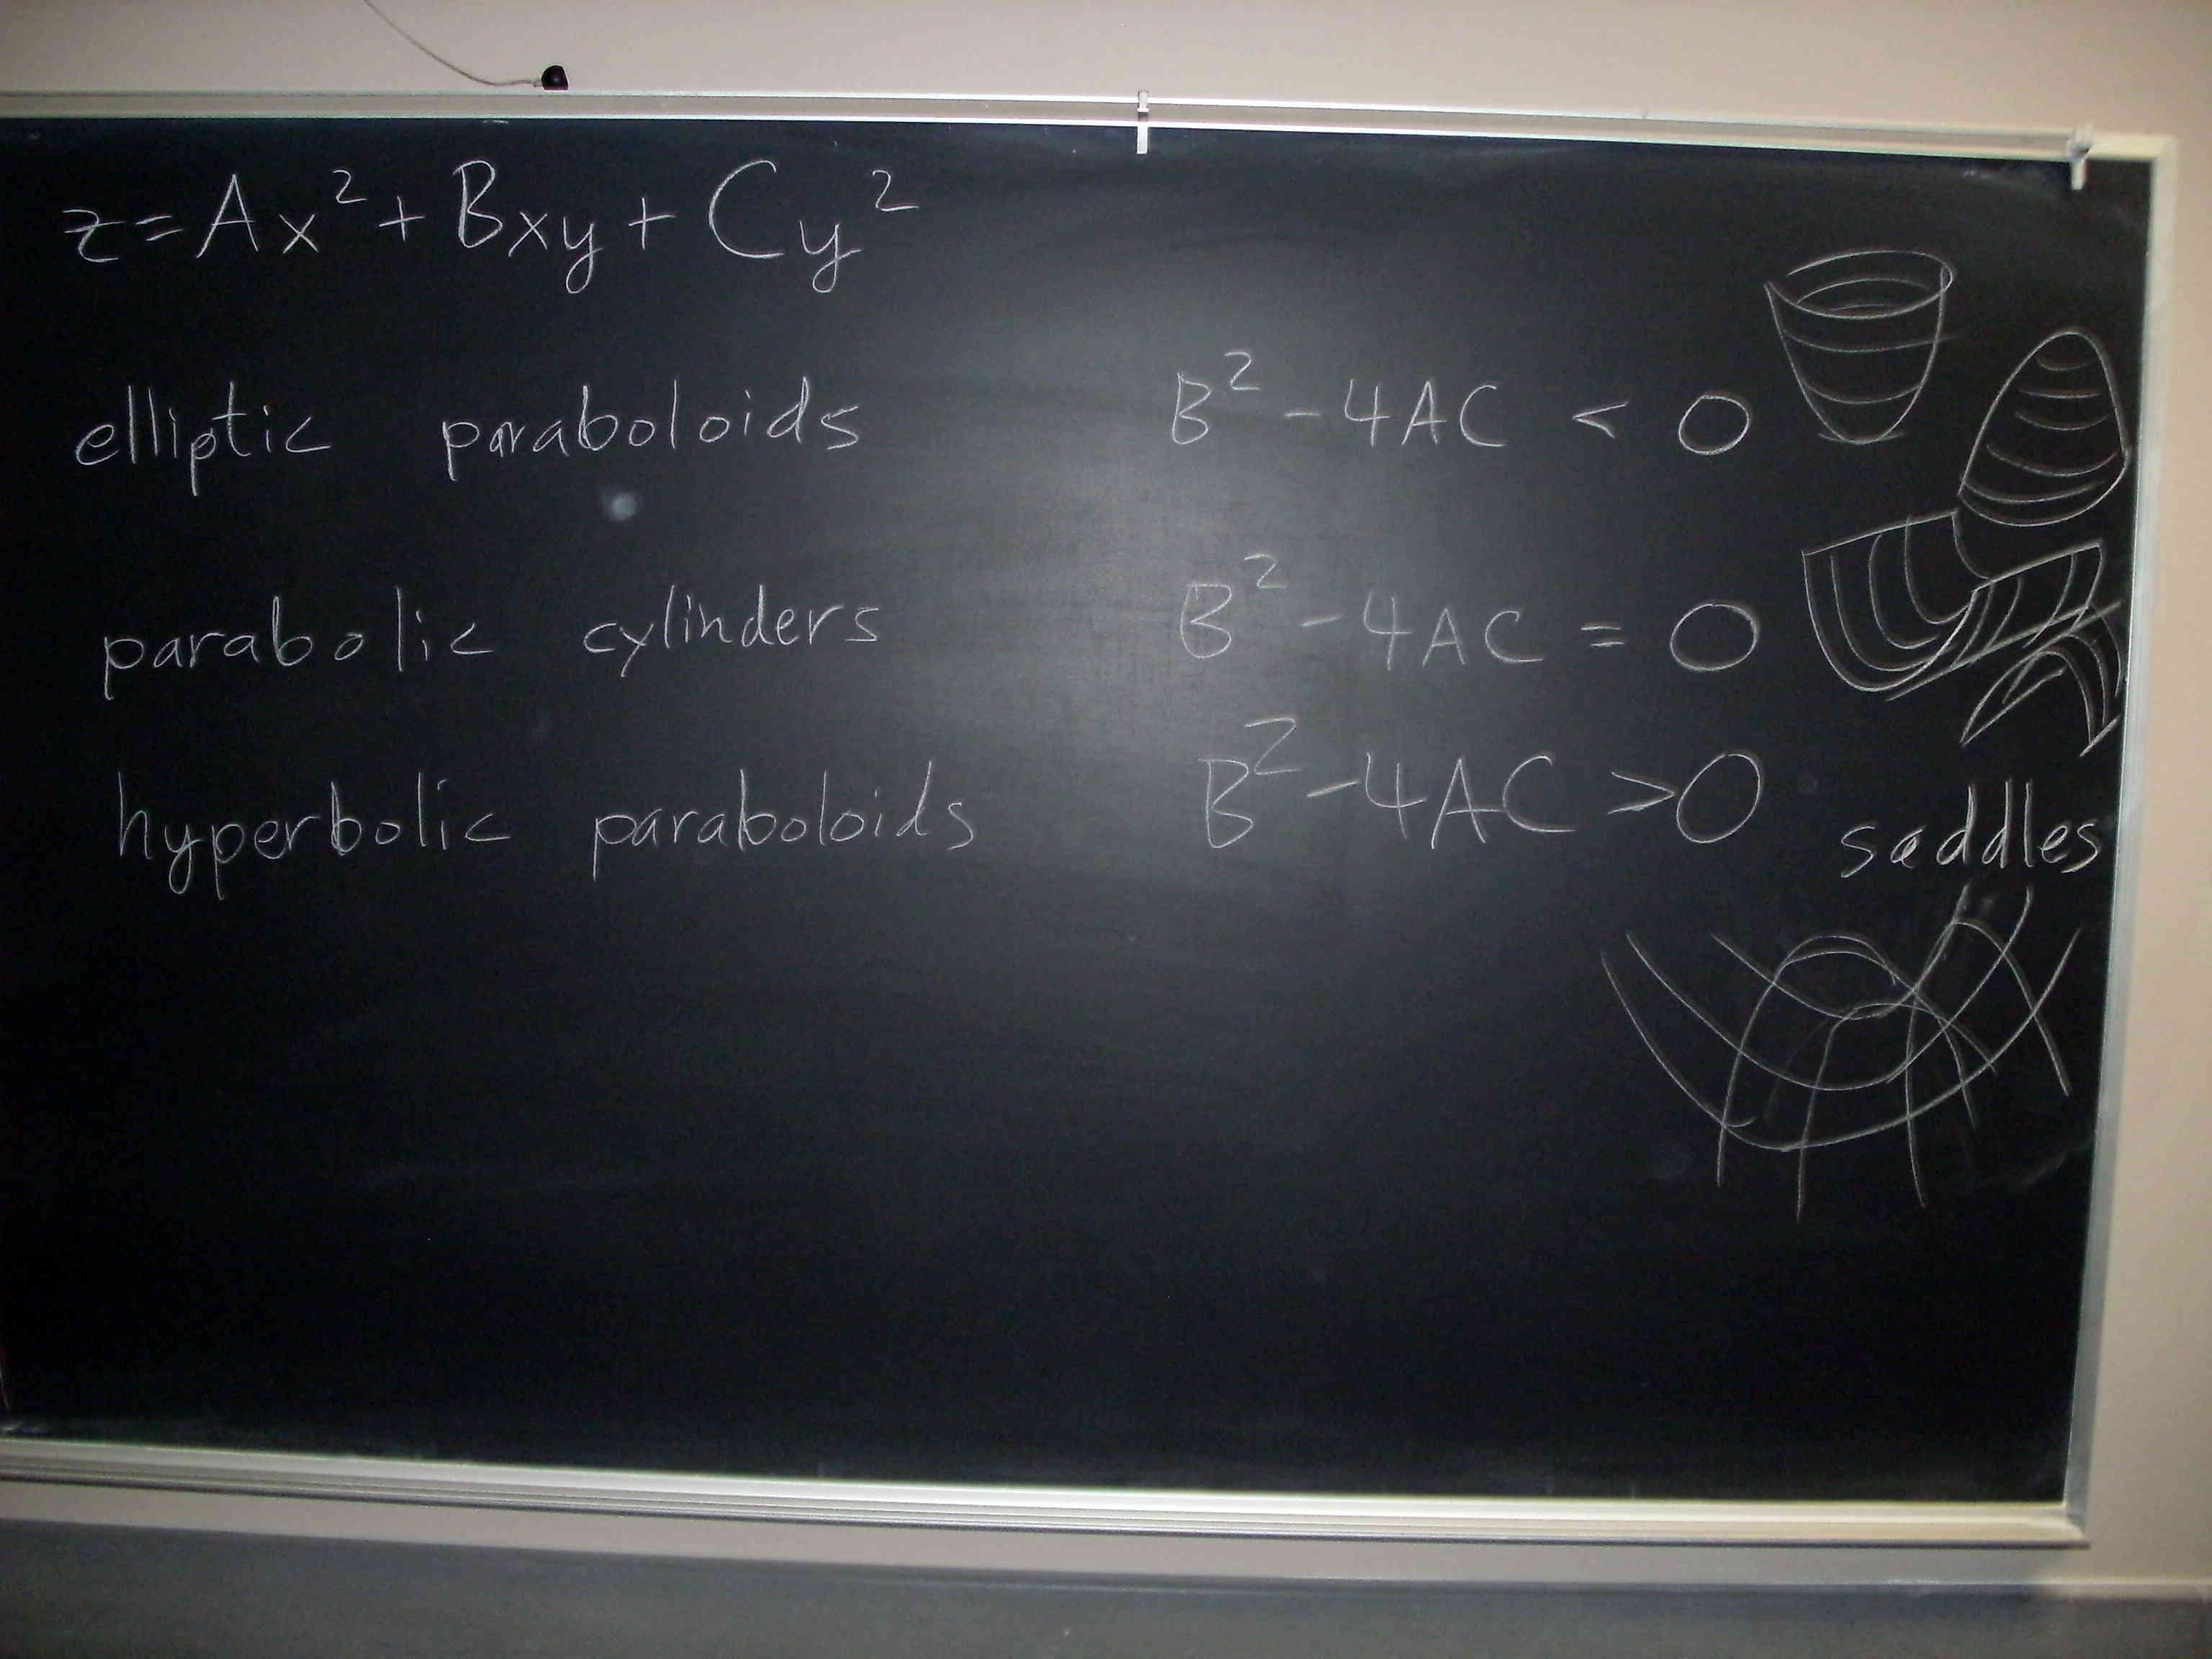 z=Ax²+Bxy+Cy²
elliptic paraboloids B²-4AC < 0
parabolic cylinders B²-4AC = 0
hyperbolic paraboloids B²-4AC >0
saddles